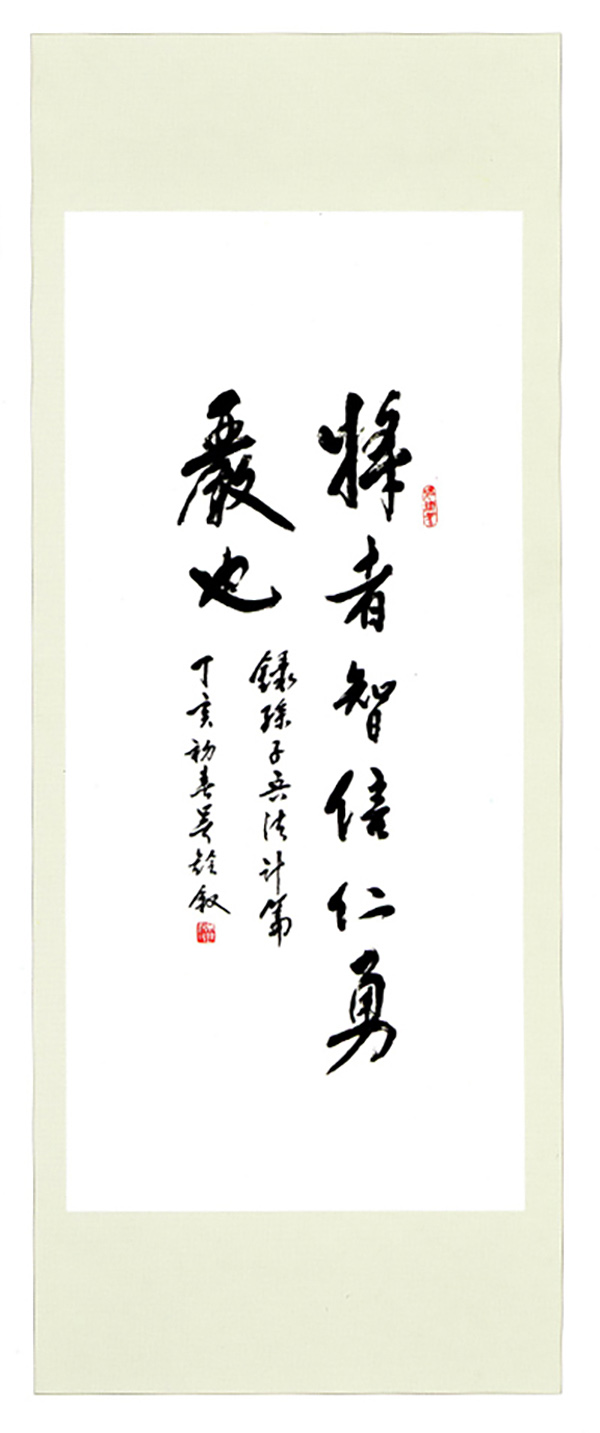 將者智信仁勇
嚴也
錄孫子兵法計篇
丁亥初春吳銓叙